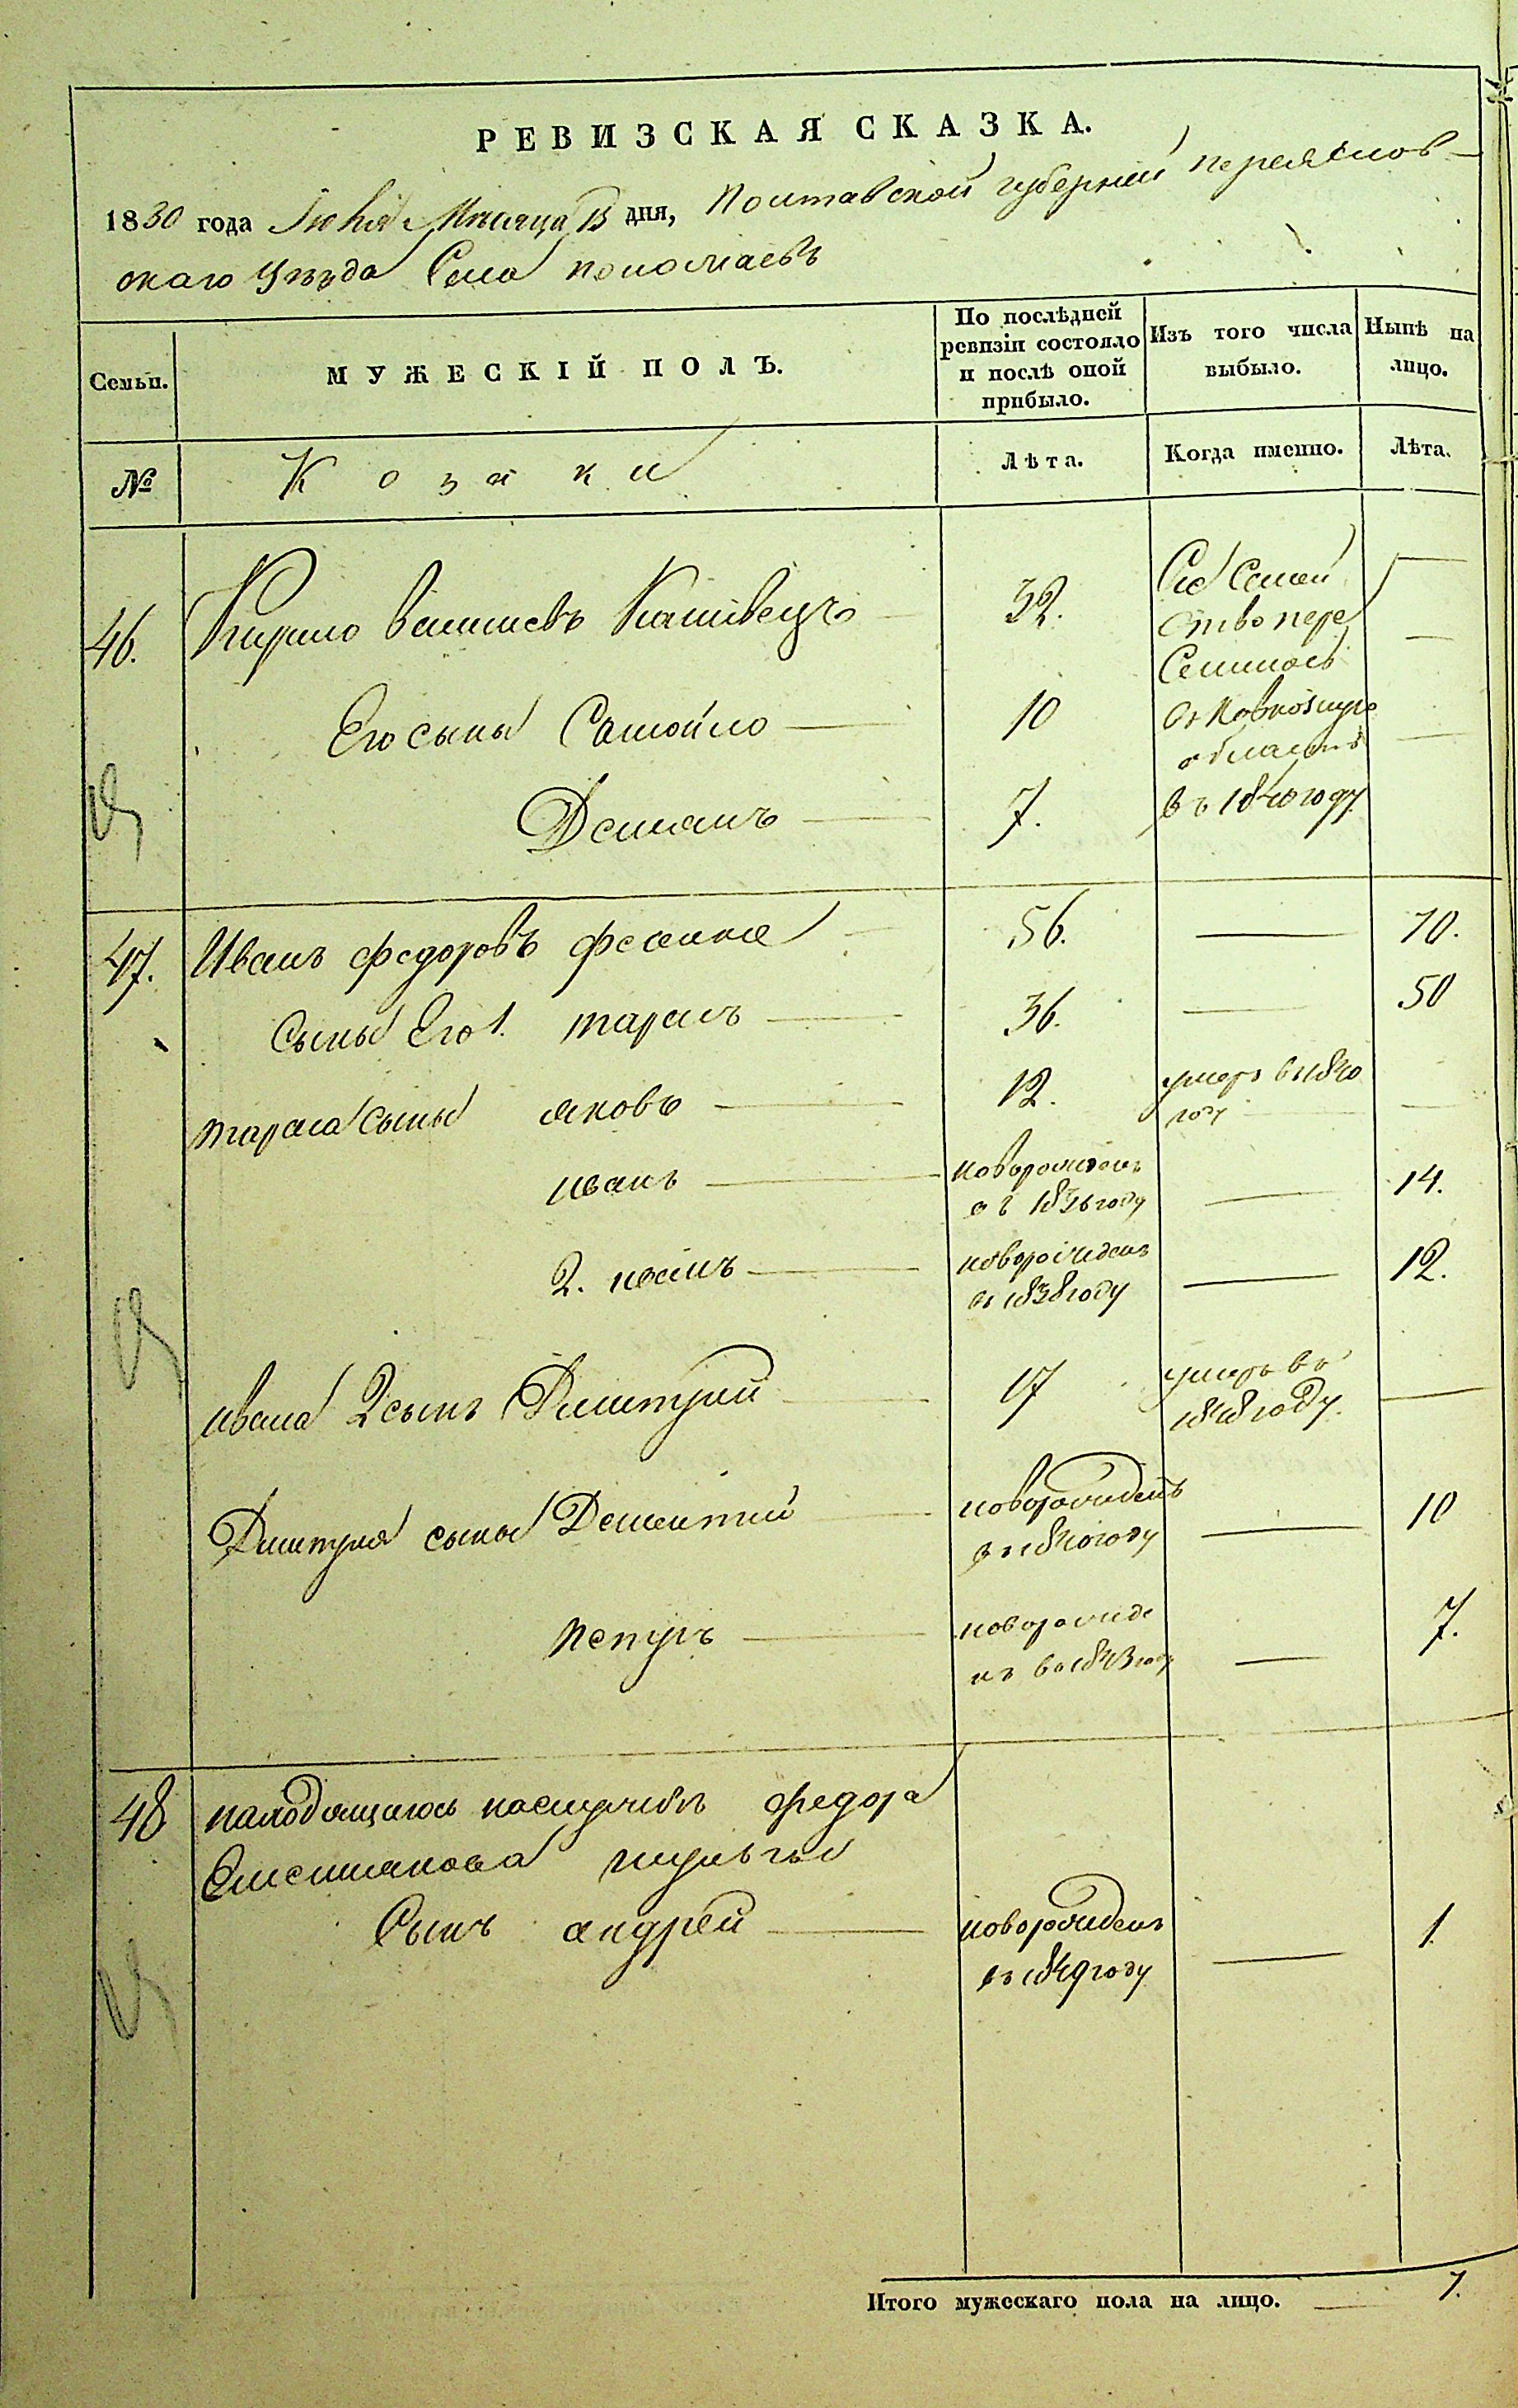 РЕВИЗСКАЯ СКАЗКА.
1830 года Іюня Мѣсяца 13 дня, Полтавской губерніи переяслов-
скаго Уѣзда Села
Семьи.
МУЖЕСКІЙ ПОЛЪ.
По послѣдней ревизіи состояло и послѣ оной прибыло.
Изъ того числа выбыло.
Нынѣ на лицо.
№
Козаки
Лѣта.
Когда именно.
Лѣта.
46. Кирило 32. Съ Семей
ство пере
Селился
Его сыны Самойло 10
области
Демянъ 7. въ 1840 году
47. Иванъ федоровъ 56. 70.
Сыны Его 1. тарасъ 36. 50
тараса Сыны яковъ 12. умеръ въ 1840
году
иванъ новорожденъ 14.
въ 1836 году
2. иванъ новорожденъ 12.
въ 1838 году
ивана 2 сынъ Дмитрий 17 умеръ въ
1848 году.
Дмитрия сыны Дементий новорожденъ 10
въ 1840 году
петръ новорожде 7.
нъ въ 1843 году
48 находящагося федора
Сынъ андрей новорожденъ 1
въ 1849 году
Итого мужескаго пола на лицо. 7.